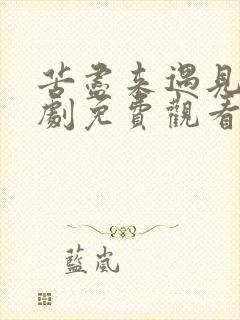 苦盡來遇見
劇免費觀看
藍嵐